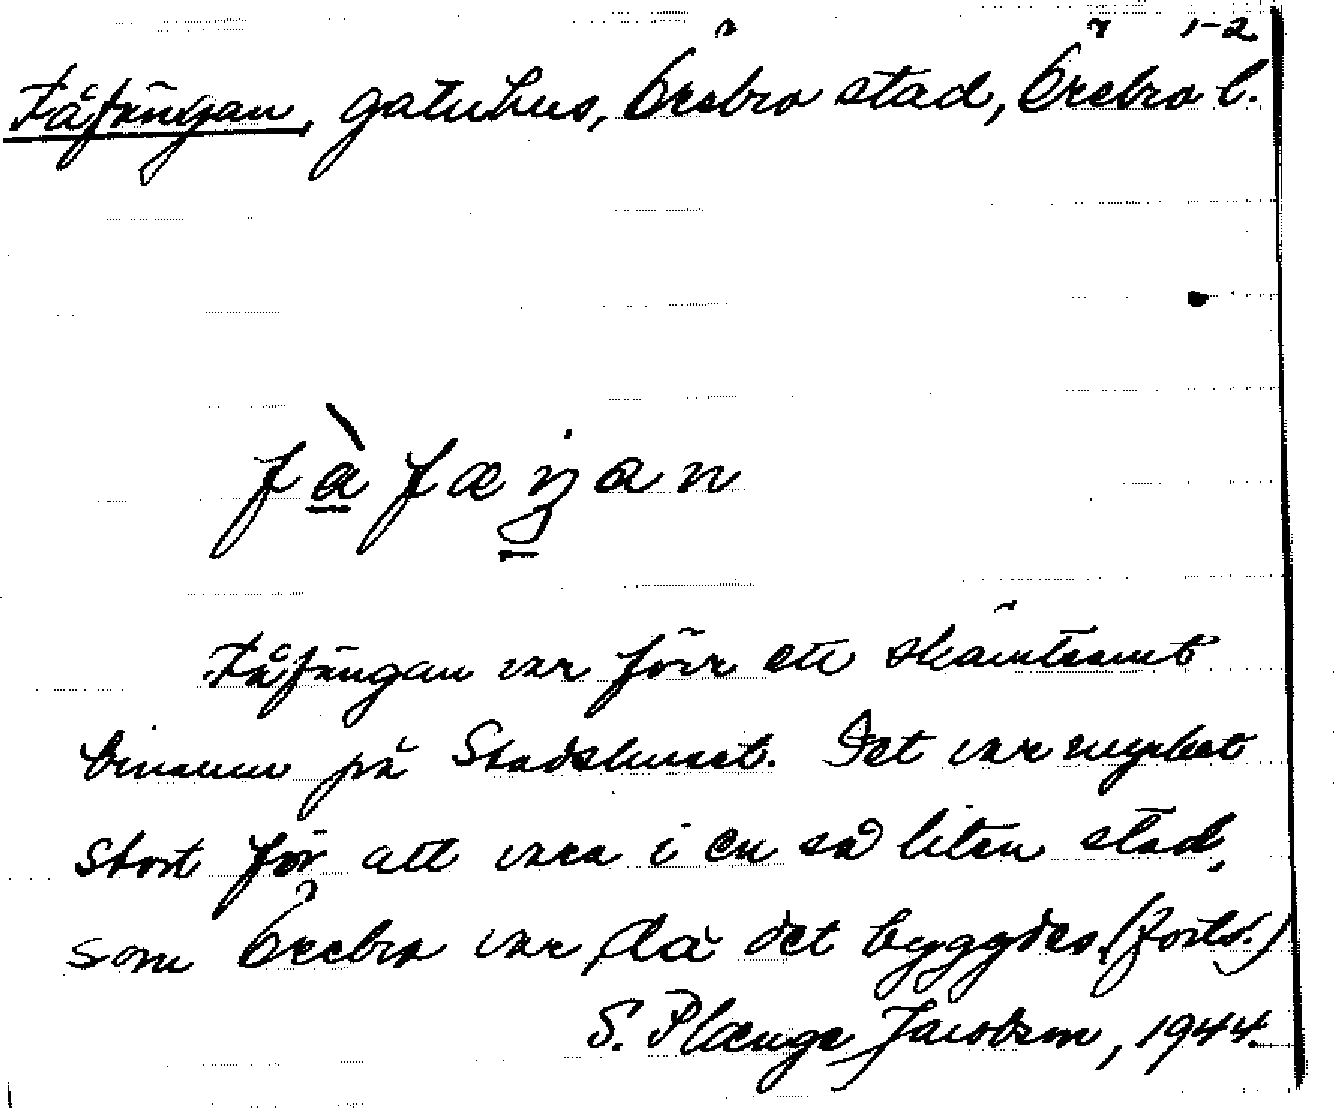 1-2
Fåfängan, gatuhus, Örebro stad, Örebro l.
fàfæŋan
Fåfängan var förr ett skämtsamt
binamn på Stadshuset. Det var mycket
stort för att vara i en så liten stad,
som Örebro var, då det byggdes. (forts.)
S. Plænge Jacobson, 1944.